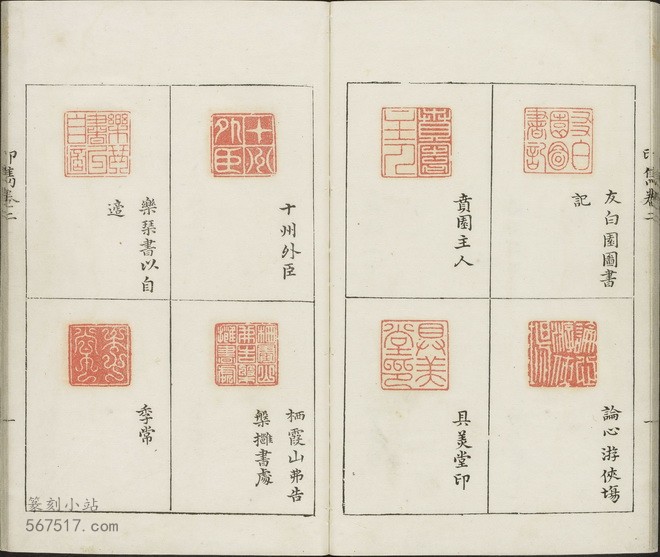 印雋卷二
一
友白園圖書
記
賁園主人
論心游俠塲
具美堂印
十州外臣
樂琴書以自
適
栖霞山弗告
槃攡書處
季常
印雋卷二
一
篆刻小站
567517.com